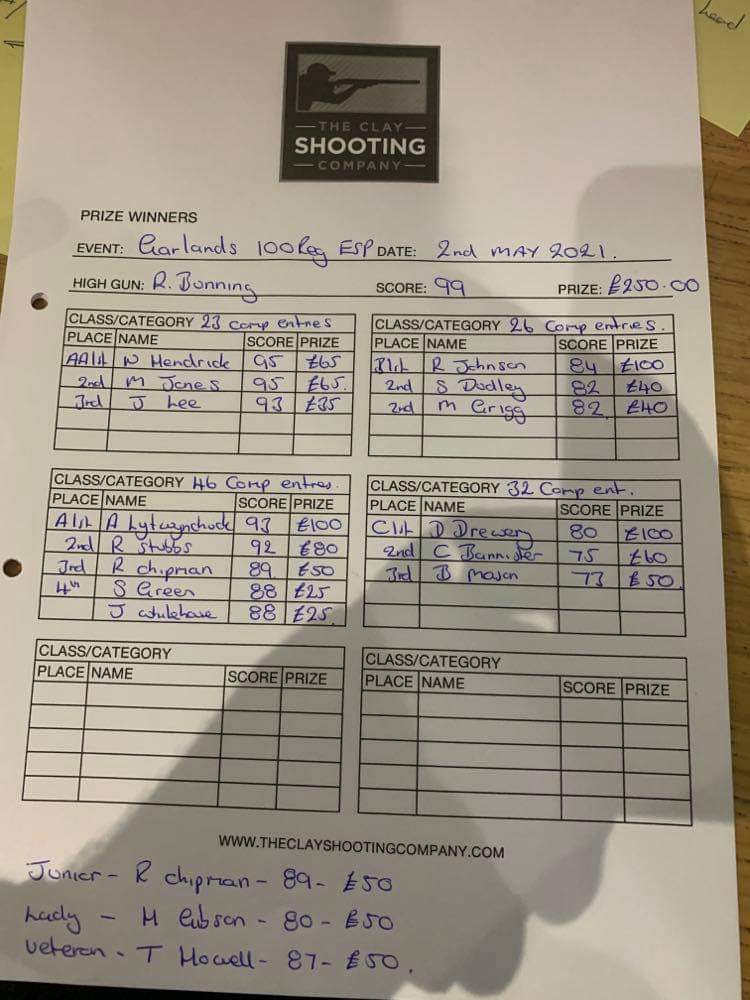 THE CLAY
SHOOTING
COMPANY
PRIZE WINNERS
EVENT: Garlands 100 Reg ESP DATE: 2nd MAY 2021.
HIGH GUN: R. Bunning SCORE: 99 PRIZE: £250.00
CLASS/CATEGORY 23 comp entries
PLACE NAME SCORE PRIZE
AA1st N Hendrick 95 £65
2nd M Jones 95 £65.
3rd J Lee 93 £35
CLASS/CATEGORY 26 Comp entries.
PLACE NAME SCORE PRIZE
B1st R Johnson 84 £100
2nd S Dudley 82 £40
2nd M Grigg 82 £40
CLASS/CATEGORY 46 Comp entries.
PLACE NAME SCORE PRIZE
A1st A 93 £100
2nd R Stubbs 92 £80
3rd R chipman 89 £50
4th S Green 88 £25
J whitehouse 88 £25
CLASS/CATEGORY 32 Comp ent.
PLACE NAME SCORE PRIZE
C1st D Drewery 80 £100
2nd C Bannister 75 £60
3rd B Mason 73 £50
CLASS/CATEGORY
PLACE NAME SCORE PRIZE
CLASS/CATEGORY
PLACE NAME SCORE PRIZE
WWW.THECLAYSHOOTINGCOMPANY.COM
Junior - R chipman - 89 - £50
Lady - M Gibson - 80 - £50
Veteran - T Howell - 87 - £50.